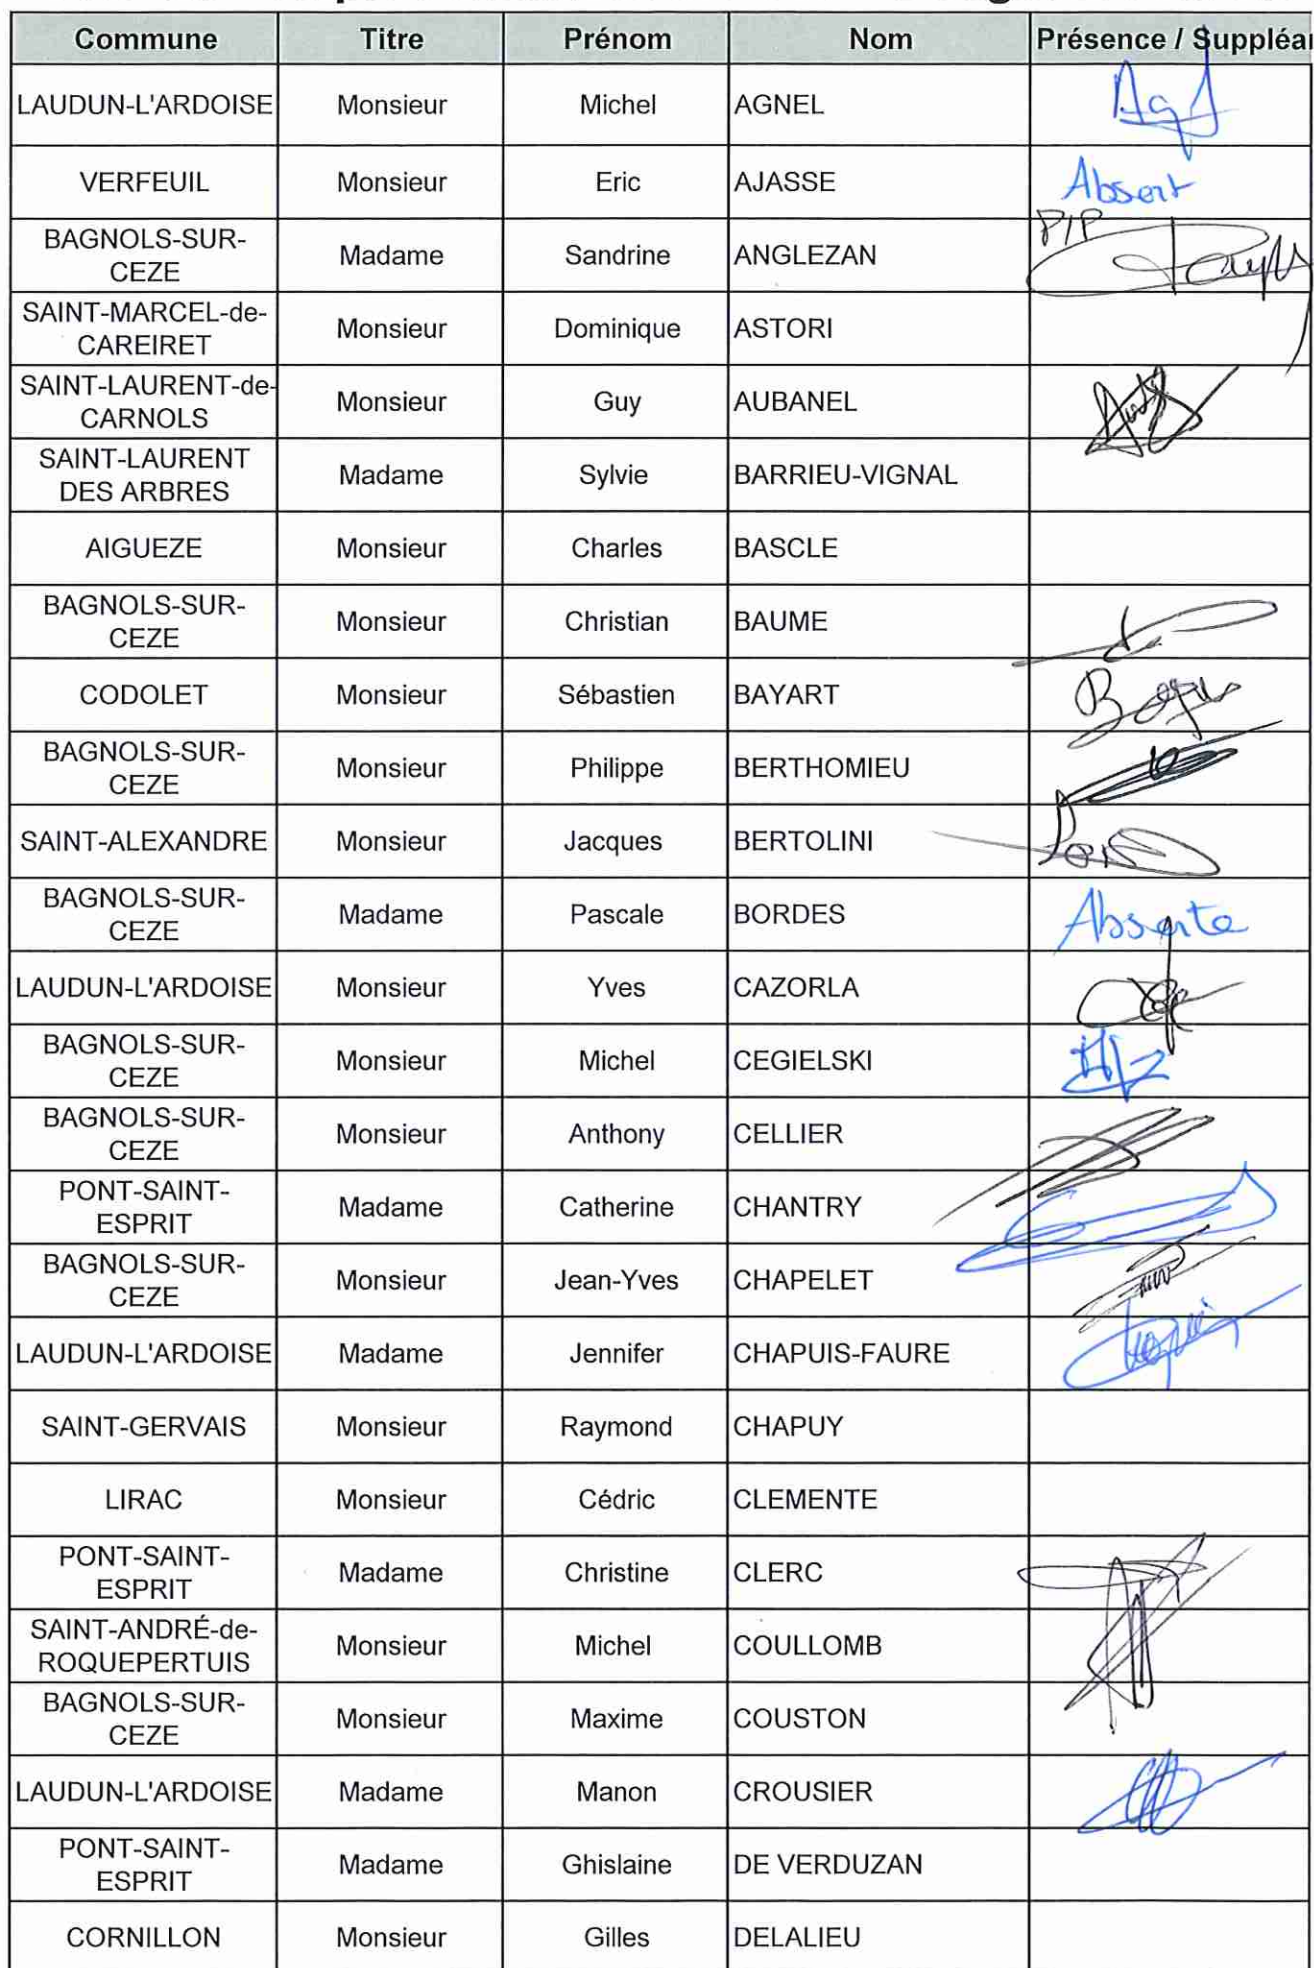 Commune Titre Prénom Nom Présence / Suppléa
LAUDUN-L'ARDOISE Monsieur Michel AGNEL
VERFEUIL Monsieur Eric AJASSE Absent
BAGNOLS-SUR-
CEZE Madame Sandrine ANGLEZAN P/P
SAINT-MARCEL-de-
CAREIRET Monsieur Dominique ASTORI
SAINT-LAURENT-de-
CARNOLS Monsieur Guy AUBANEL
SAINT-LAURENT
DES ARBRES Madame Sylvie BARRIEU-VIGNAL
AIGUEZE Monsieur Charles BASCLE
BAGNOLS-SUR-
CEZE Monsieur Christian BAUME
CODOLET Monsieur Sébastien BAYART
BAGNOLS-SUR-
CEZE Monsieur Philippe BERTHOMIEU
SAINT-ALEXANDRE Monsieur Jacques BERTOLINI
BAGNOLS-SUR-
CEZE Madame Pascale BORDES Absente
LAUDUN-L'ARDOISE Monsieur Yves CAZORLA
BAGNOLS-SUR-
CEZE Monsieur Michel CEGIELSKI
BAGNOLS-SUR-
CEZE Monsieur Anthony CELLIER
PONT-SAINT-
ESPRIT Madame Catherine CHANTRY
BAGNOLS-SUR-
CEZE Monsieur Jean-Yves CHAPELET
LAUDUN-L'ARDOISE Madame Jennifer CHAPUIS-FAURE
SAINT-GERVAIS Monsieur Raymond CHAPUY
LIRAC Monsieur Cédric CLEMENTE
PONT-SAINT-
ESPRIT Madame Christine CLERC
SAINT-ANDRÉ-de-
ROQUEPERTUIS Monsieur Michel COULLOMB
BAGNOLS-SUR-
CEZE Monsieur Maxime COUSTON
LAUDUN-L'ARDOISE Madame Manon CROUSIER
PONT-SAINT-
ESPRIT Madame Ghislaine DE VERDUZAN
CORNILLON Monsieur Gilles DELALIEU